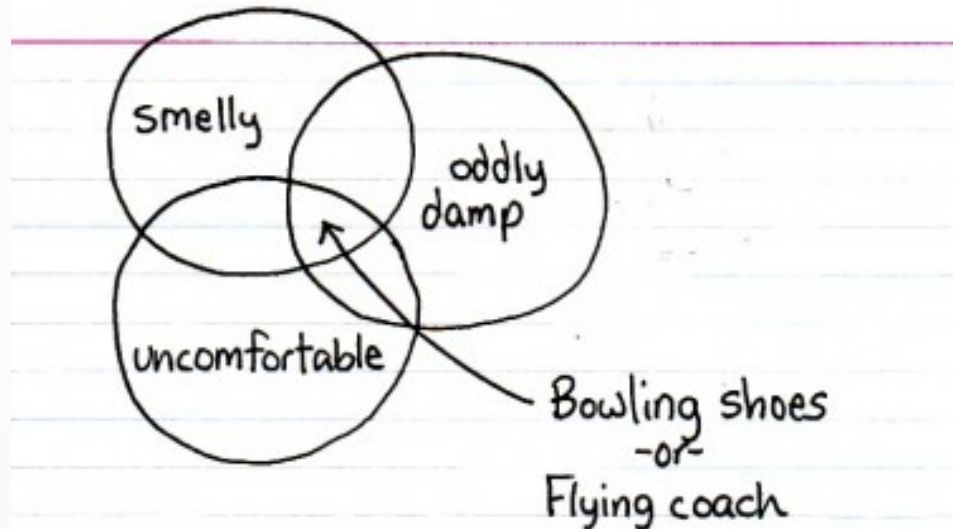 smelly
oddly
damp
uncomfortable
Bowling shoes
-or-
Flying coach